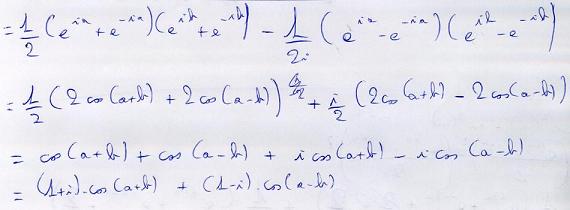 = 1/2 (e^{ia} + e^{-ia})(e^{ib} + e^{-ib}) - 1/2i (e^{ia} - e^{-ia})(e^{ib} - e^{-ib})
= 1/2 (2 cos(a+b) + 2 cos(a-b)) + i/2 (2 cos(a+b) - 2 cos(a-b))
= cos(a+b) + cos(a-b) + i cos(a+b) - i cos(a-b)
= (1+i).cos(a+b) + (1-i).cos(a-b)